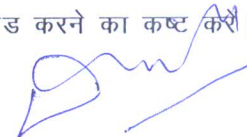 ड करने का कष्ट करें